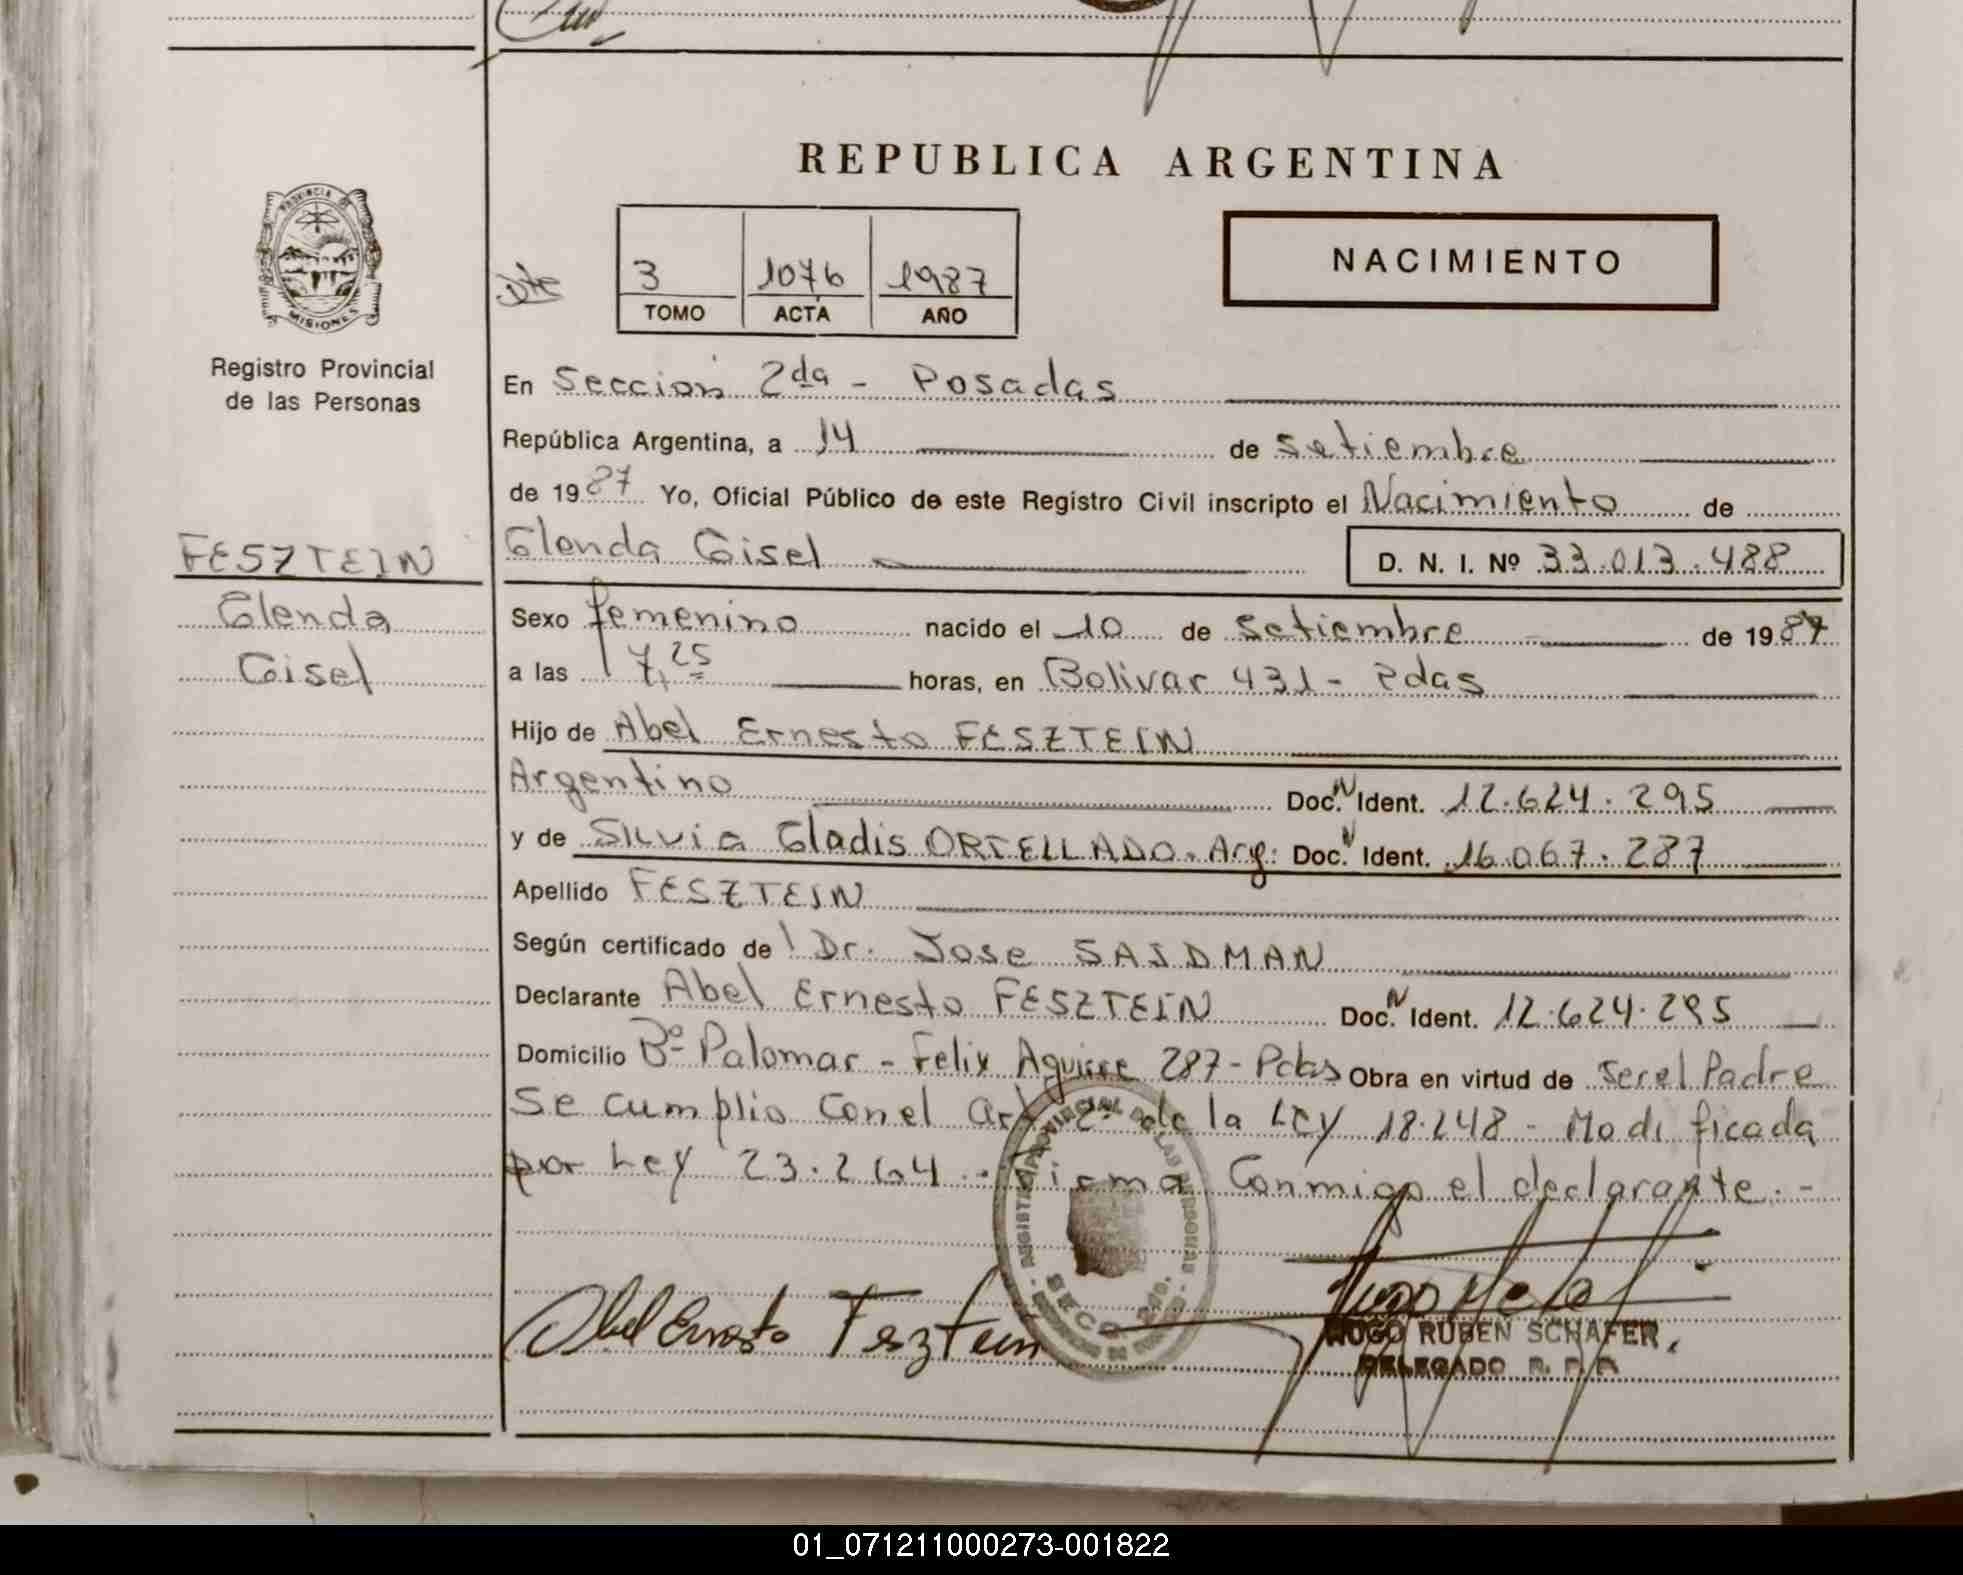 REPUBLICA ARGENTINA
PROVINCIA DE
MISIONES
Registro Provincial
de las Personas
3 1076 1987
TOMO ACTA AÑO
NACIMIENTO
En Seccion 2da - Posadas
República Argentina, a 14 de Setiembre
de 1987 Yo, Oficial Público de este Registro Civil inscripto el Nacimiento de
FESZTEIN
Glenda
Gisel
Glenda Gisel D. N. I. Nº 33.013.488
Sexo femenino nacido el 10 de Setiembre de 1987
a las 17,25 horas, en Bolivar 431 - Pdas
Hijo de Abel Ernesto FESZTEIN
Argentino Doc. N Ident. 12.624.295
y de Silvia Gladis ORTELLADO. Arg: Doc. N Ident. 16.067.287
Apellido FESZTEIN
Según certificado de Dr. Jose SAIDMAN
Declarante Abel Ernesto FESZTEIN Doc. N Ident. 12.624.295
Domicilio Bº Palomar - Felix Aguirre 287 - Pdas Obra en virtud de Ser el Padre
Se cumplio con el Art 2º de la Ley 18.248 - Modificada
por Ley 23.264.- Firma Conmigo el declarante.-
Abel Ernesto Fesztein
HUGO RUBEN SCHAFER
DELEGADO R. P. P.
01_071211000273-001822